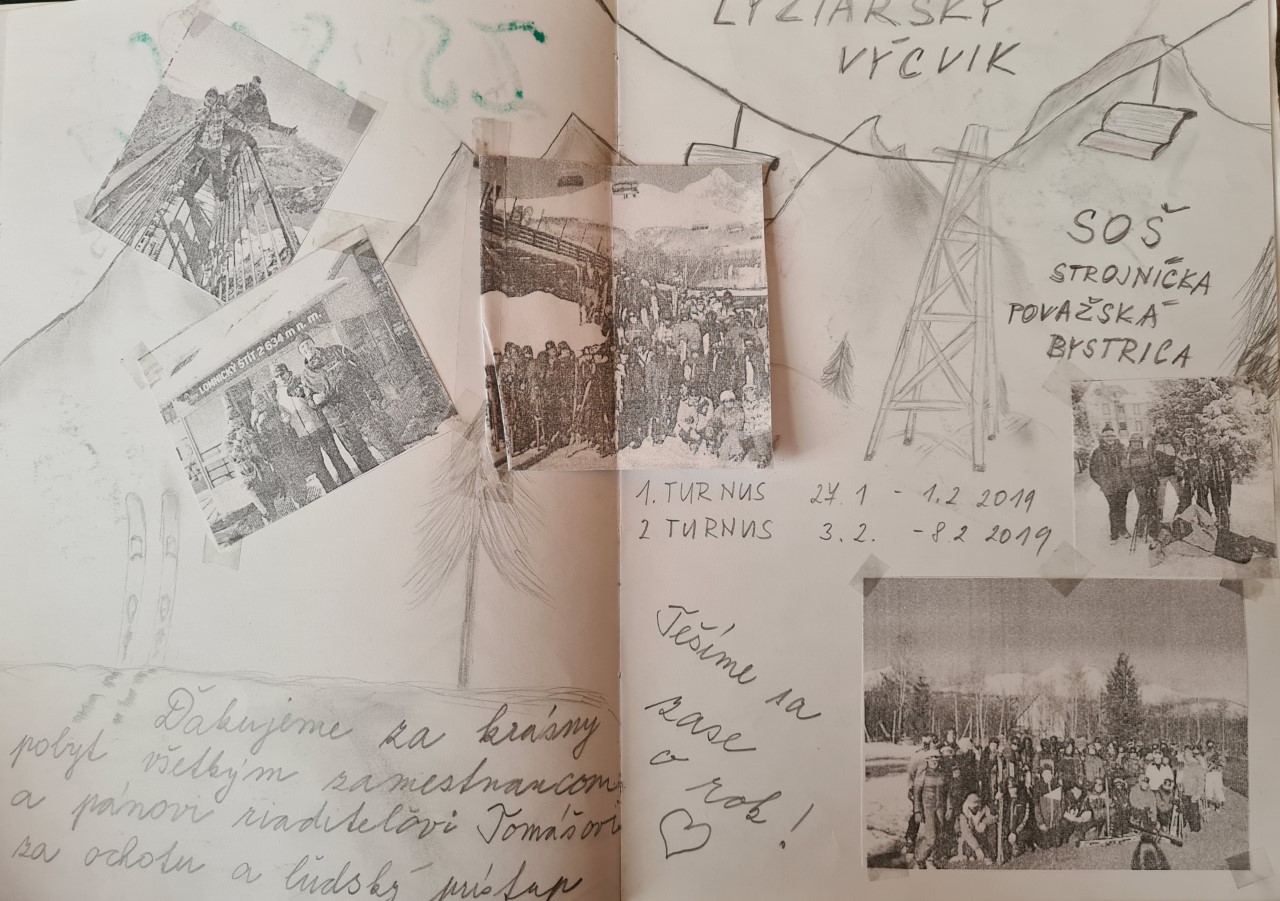 LOMNICKÝ ŠTÍT 2 634 m n. m.
Ďakujeme za krásny
pobyt všetkým zamestnancom
a pánovi riaditeľovi Tomášovi
za ochotu a ľudský prístup
LYŽIARSKY
VÝCVIK
SOŠ
STROJNÍČKA
POVAŽSKÁ
BYSTRICA
1. TURNUS 27.1 - 1.2 2019
2 TURNUS 3.2. - 8.2 2019
Tešíme sa
zase
o rok!